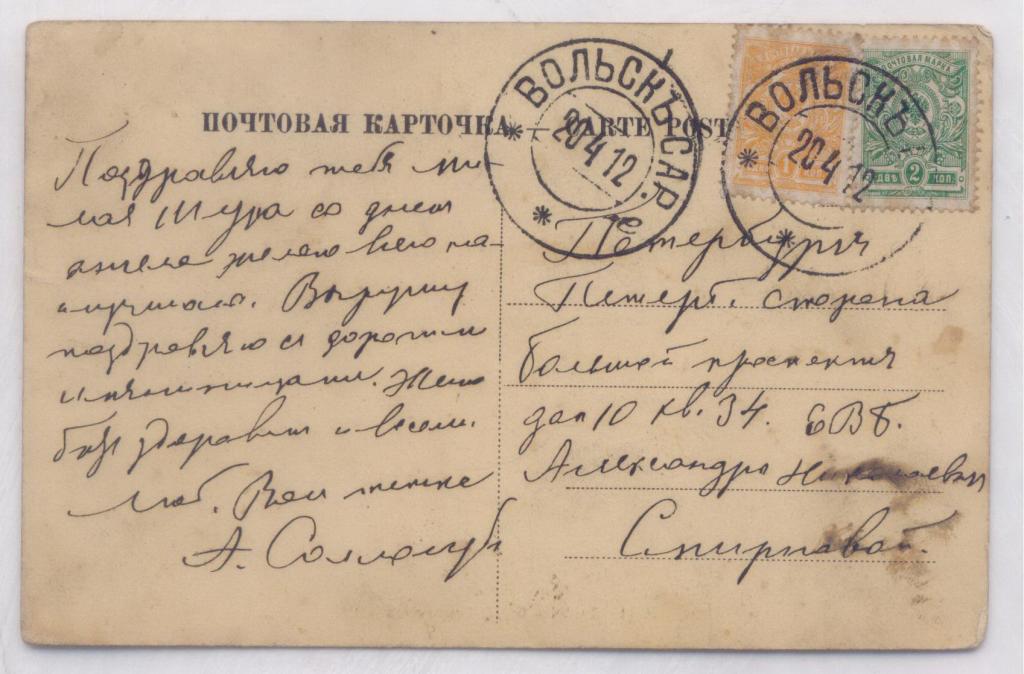 ПОЧТОВАЯ КАРТОЧКА — CARTE POST
ВОЛЬСКЪ САР.
20 4 12
ВОЛЬСКЪ
20 4 12
ПОЧТОВАЯ МАРКА
ДВѢ 2 КОП.
Поздравляю тебя ми-
лая Шура со днем
ангела желаю всего на-
илучшаго.
поздравляю с дорогими
именинницами.
будь здорова и весела.
Люб. Вас тетка
А. Соллогуб
Петербургъ
Петерб. сторона
большой проспектъ
дом 10 кв. 34. ЕВБ.
Александре Николаевне
Смирновой.